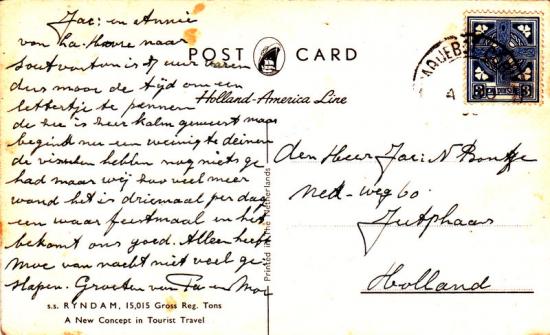 Jac: en Annie
van La-Havre naar
Soutvorton is 7 uur varen
dus mooi de tijd om een
lettertje te pennen
de zee is zeer kalm geweest maar
begint nu een weinig te deinen
de visschen hebben nog niets ge
had maar wij des te veel meer
want het is driemaal per dag
een waar feestmaal en het
bekomt ons goed. Alleen heeft
Moe van nacht niet veel ge-
slapen. Groeten van Pa en Moe
s.s. RYNDAM, 15,015 Gross Reg. Tons
A New Concept in Tourist Travel
POST CARD
Holland-America Line
Printed in The Netherlands
PAQUEB
3 3
den Heer Jac: N
Ned-weg 60.
Jutphaas
Holland